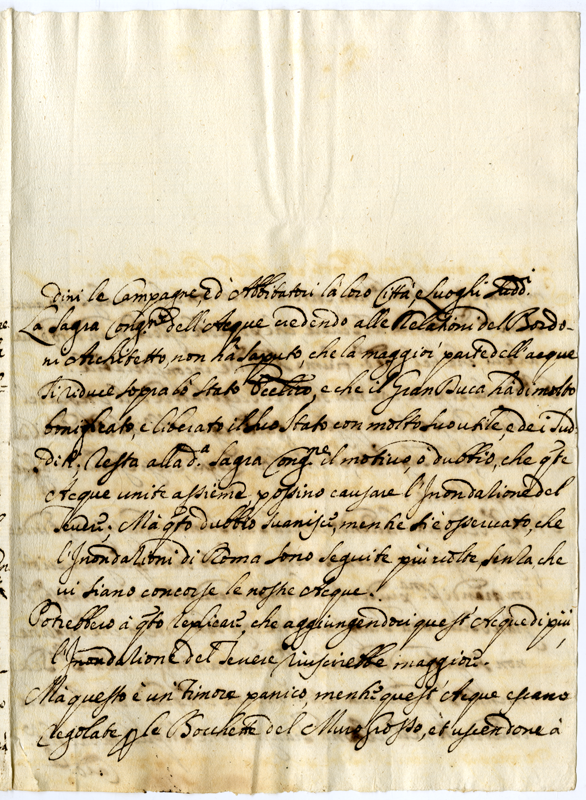 dini le Campagne, ed' Abbitatori la loro Città, e Luoghi Sudd.i
La Sagra Cong.ne dell'Acque credendo alle Relationi del Bordo-
ni Architetto, non hà saputo, che la maggior' parte dell'acque
si riduce sopra lo stato Ecclico, e che il Gran Duca hà di molto
bonificato, e liberato il suo Stato con molto suo utile, e de i Sud-
diti. Resta alla d.a Sagra Cong.ne il motivo, ò dubbio, che q.te
Acque unite assieme possino causare l'Inondatione del
Tevere; Mà q.to dubbio svanisce, mentre si è osservato, che
l'Inondationi di Roma sono seguite più volte, senza che
vi siano concorse le nostre Acque.
Potrebbero à q.to replicare, che aggiungendoci quest'Acque di più
l'Inondatione del Tevere riuscirebbe maggiore.
Mà questo è un Timore panico, mentre quest'Acque escano
regolate p le Bocchette del Muro Grosso, et uscendone à